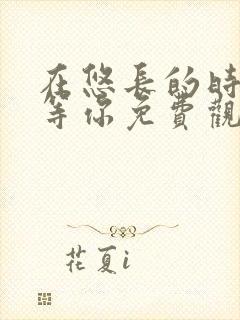 在悠長的時
等你免費觀
花夏i